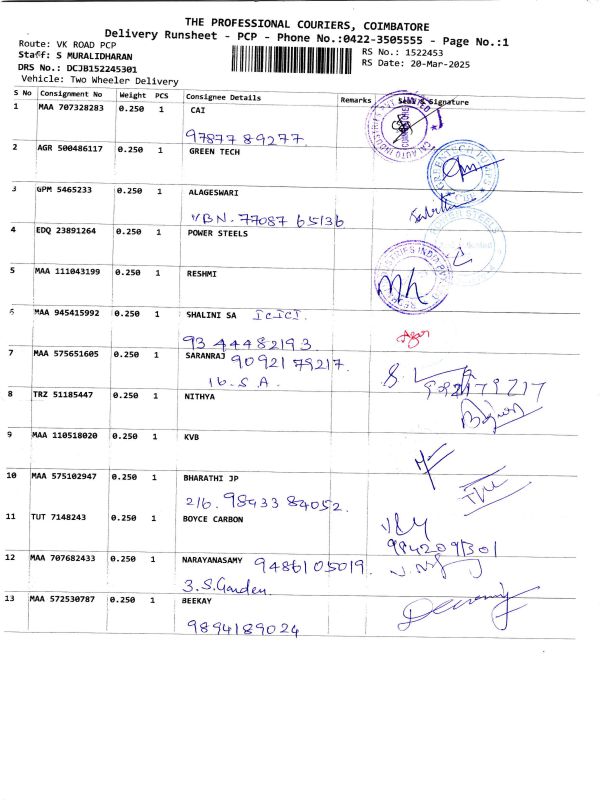 THE PROFESSIONAL COURIERS, COIMBATORE
Delivery Runsheet - PCP - Phone No.:0422-3505555 - Page No.:1
Route: VK ROAD PCP
RS No.: 1522453
Staff: S MURALIDHARAN
RS Date: 20-Mar-2025
DRS No.: DCJB152245301
Vehicle: Two Wheeler Delivery
S No Consignment No Weight PCS Consignee Details Remarks Seal & Signature
1 MAA 707328283 0.250 1 CAI
97877 89277
2 AGR 500486117 0.250 1 GREEN TECH
3 GPM 5465233 0.250 1 ALAGESWARI
VBN. 77087 65136
4 EDQ 23891264 0.250 1 POWER STEELS
5 MAA 111043199 0.250 1 RESHMI
6 MAA 945415992 0.250 1 SHALINI SA ICICI
93 44482193
7 MAA 575651605 0.250 1 SARANRAJ 90921 79217.
16. S A.
8 TRZ 51185447 0.250 1 NITHYA
9 MAA 110518020 0.250 1 KVB
10 MAA 575102947 0.250 1 BHARATHI JP
216. 98433 84052.
11 TUT 7148243 0.250 1 BOYCE CARBON
9842091301
12 MAA 707682433 0.250 1 NARAYANASAMY 9486105019.
3. S. Garden
13 MAA 572530787 0.250 1 BEEKAY
9894189024